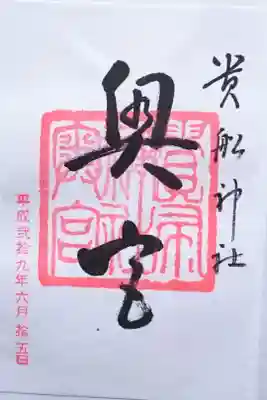 貴船神社
奥宮
貴船神社奥宮
平成弐拾九年六月拾五日